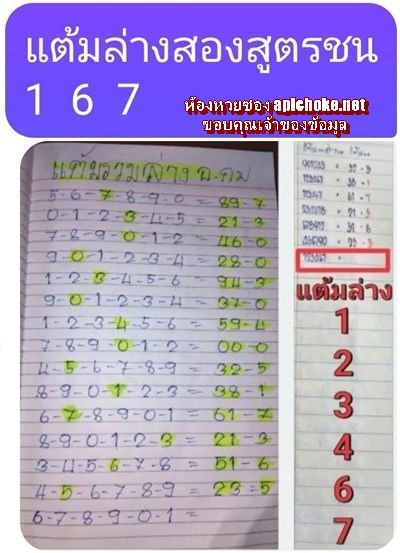 แต้มล่างสองสูตรชน
1 6 7
ห้องหวยซอง apichoke.net
ขอบคุณเจ้าของข้อมุล
แต้มรวมล่าง อ.คม
5-6-7-8-9-0 = 89-7
0-1-2-3-4-5 = 21-3
7-8-9-0-1-2 = 46-0
9-0-1-2-3-4 = 28-0
1-2-3-4-5-6 = 94-3
9-0-1-2-3-4 = 37-0
1-2-3-4-5-6 = 59-4
7-8-9-0-1-2 = 00-0
4-5-6-7-8-9 = 32-5
8-9-0-1-2-3 = 38-1
6-7-8-9-0-1 = 61-7
8-9-0-1-2-3 = 21-3
3-4-5-6-7-8 = 51-6
4-5-6-7-8-9 = 23=5
6-7-8-9-0-1 =
แต้มล่าง
1
2
3
4
6
7